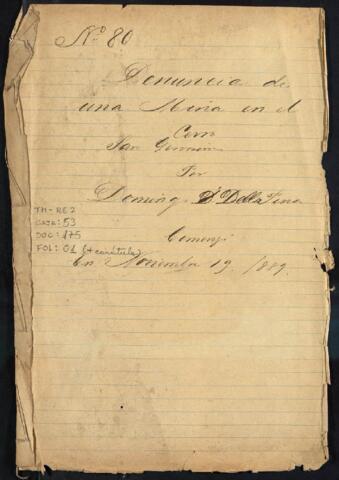 Nº 80
Denuncia de
una Mina en el
Cerro
San Geronimo
Por
Domingo D. Della Fina
TM-RE2
CAJA: 53
DOC: 175
FOL: 01 (+ carátula)
Comenzó
En Noviembre 19. /889.